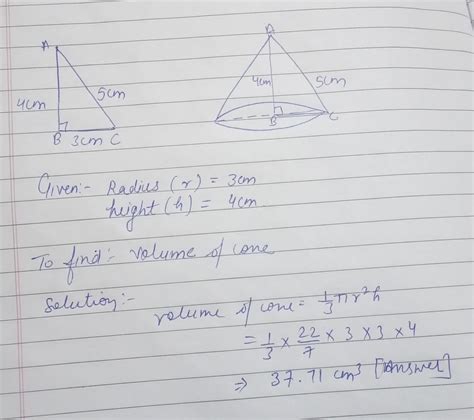 A
4cm
5cm
B
3cm
C
A
4cm
5cm
B
C
Given:- Radius (r) = 3cm
height (h) = 4cm
To find:- volume of cone
Solution:-
volume of cone = 1/3 πr²h
= 1/3 × 22/7 × 3 × 3 × 4
⇒ 37.71 cm³ [Answer]